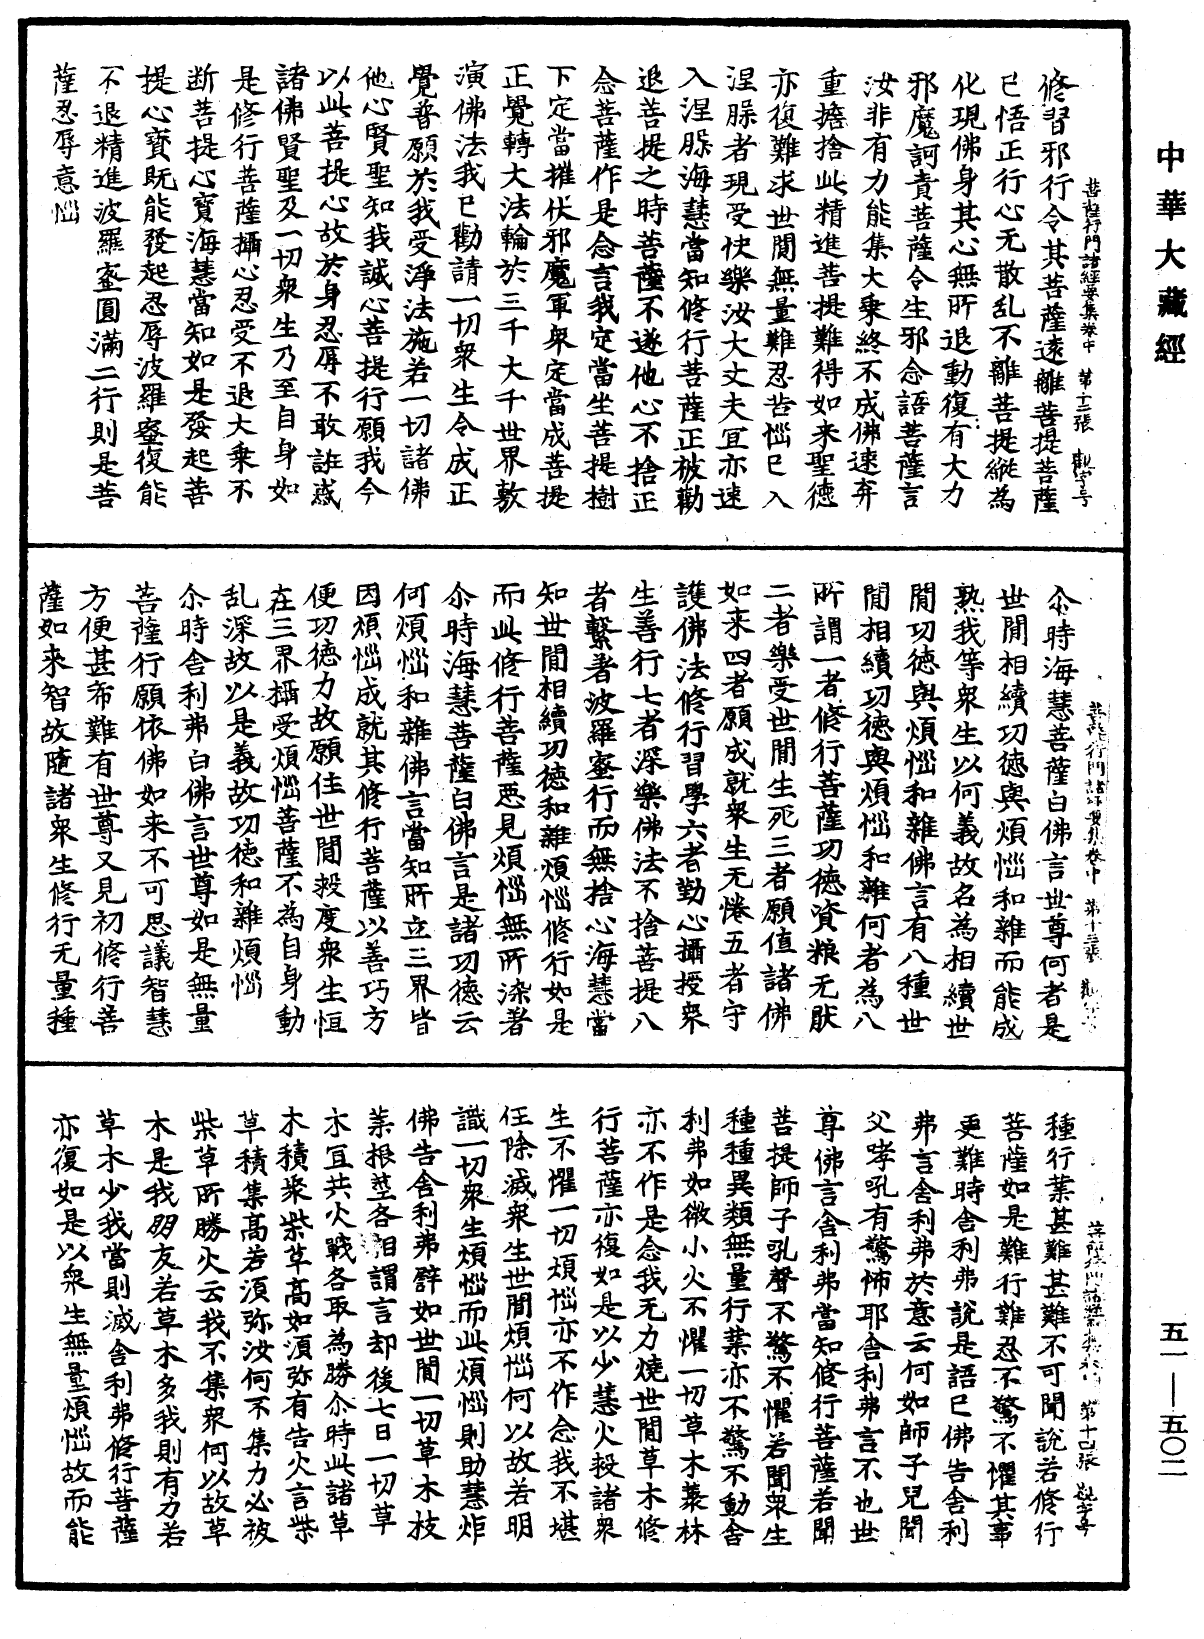 中華大藏經
五一—五〇二
菩薩行門諸經要集卷中 第十二張 觀字号
修習邪行令其菩薩遠離菩提菩薩
已悟正行心无散乱不離菩提縱為
化現佛身其心無所退動復有大力
邪魔訶責菩薩令生邪念語菩薩言
汝非有力能集大乗終不成佛速弃
重擔捨此精進菩提難得如来聖徳
亦復難求世間無量難忍苦惱已入
涅槃者現受快樂汝大丈夫冝亦速
入涅槃海慧當知修行菩薩正被勸
退菩提之時菩薩不遂他心不捨正
念菩薩作是念言我定當坐菩提樹
下定當摧伏邪魔軍衆定當成菩提
正覺轉大法輪於三千大千世界敷
演佛法我已勸請一切衆生令成正
覺普願於我受淨法施若一切諸佛
他心賢聖知我誠心菩提行願我今
以此菩提心故於身忍辱不敢誑惑
諸佛賢聖及一切衆生乃至自身如
是修行菩薩攝心忍受不退大乗不
断菩提心寶海慧當知如是發起菩
提心寶既能發起忍辱波羅蜜復能
不退精進波羅蜜圓滿二行則是菩
薩忍辱意惱
菩薩行門諸經要集卷中 第十三張
尒時海慧菩薩白佛言世尊何者是
世間相續功徳與煩惱和雜而能成
熟我等衆生以何義故名為相續世
間功徳與煩惱和雜佛言有八種世
間相續功徳與煩惱和雜何者為八
所謂一者修行菩薩功徳資粮无猒
二者樂受世間生死三者願值諸佛
如来四者願成就衆生无惓五者守
護佛法修行習學六者勤心攝授衆
生善行七者深樂佛法不捨菩提八
者繫著波羅蜜行而無捨心海慧當
知世間相續功徳和雜煩惱修行如是
而此修行菩薩悉見煩惱無所染著
尒時海慧菩薩白佛言是諸功徳云
何煩惱和雜佛言當知所立三界皆
因煩惱成就其修行菩薩以善巧方
便功徳力故願住世間救度衆生恒
在三界攝受煩惱菩薩不為自身動
乱深故以是義故功徳和雜煩惱
尒時舍利弗白佛言世尊如是無量
菩薩行願依佛如来不可思議智慧
方便甚希難有世尊又見初修行菩
薩如来智故隨諸衆生修行无量種
第十四張
種行業甚難甚難不可聞說若修行
菩薩如是難行難忍不驚不懼其事
更難時舍利弗說是語已佛告舍利
弗言舍利弗於意云何如師子兒聞
父哮吼有驚怖耶舍利弗言不也世
尊佛言舍利弗當知修行菩薩若聞
菩提師子吼聲不驚不懼若聞衆生
種種異類無量行業亦不驚不動舍
利弗如微小火不懼一切草木藂林
亦不作是念我无力燒世間草木修
行菩薩亦復如是以少慧火殺諸衆
生不懼一切煩惱亦不作念我不堪
任除滅衆生世間煩惱何以故若明
識一切衆生煩惱而此煩惱則助慧炬
佛告舍利弗辟如世間一切草木枝
葉根莖各相謂言却後七日一切草
木冝共火戰各取為勝尒時此諸草
木積聚柴草高如湏弥有告火言柴
草積集高若湏弥汝何不集力必被
柴草所勝火云我不集衆何以故草
木是我朋友若草木多我則有力若
草木少我當則滅舍利弗修行菩薩
亦復如是以衆生無量煩惱故而能